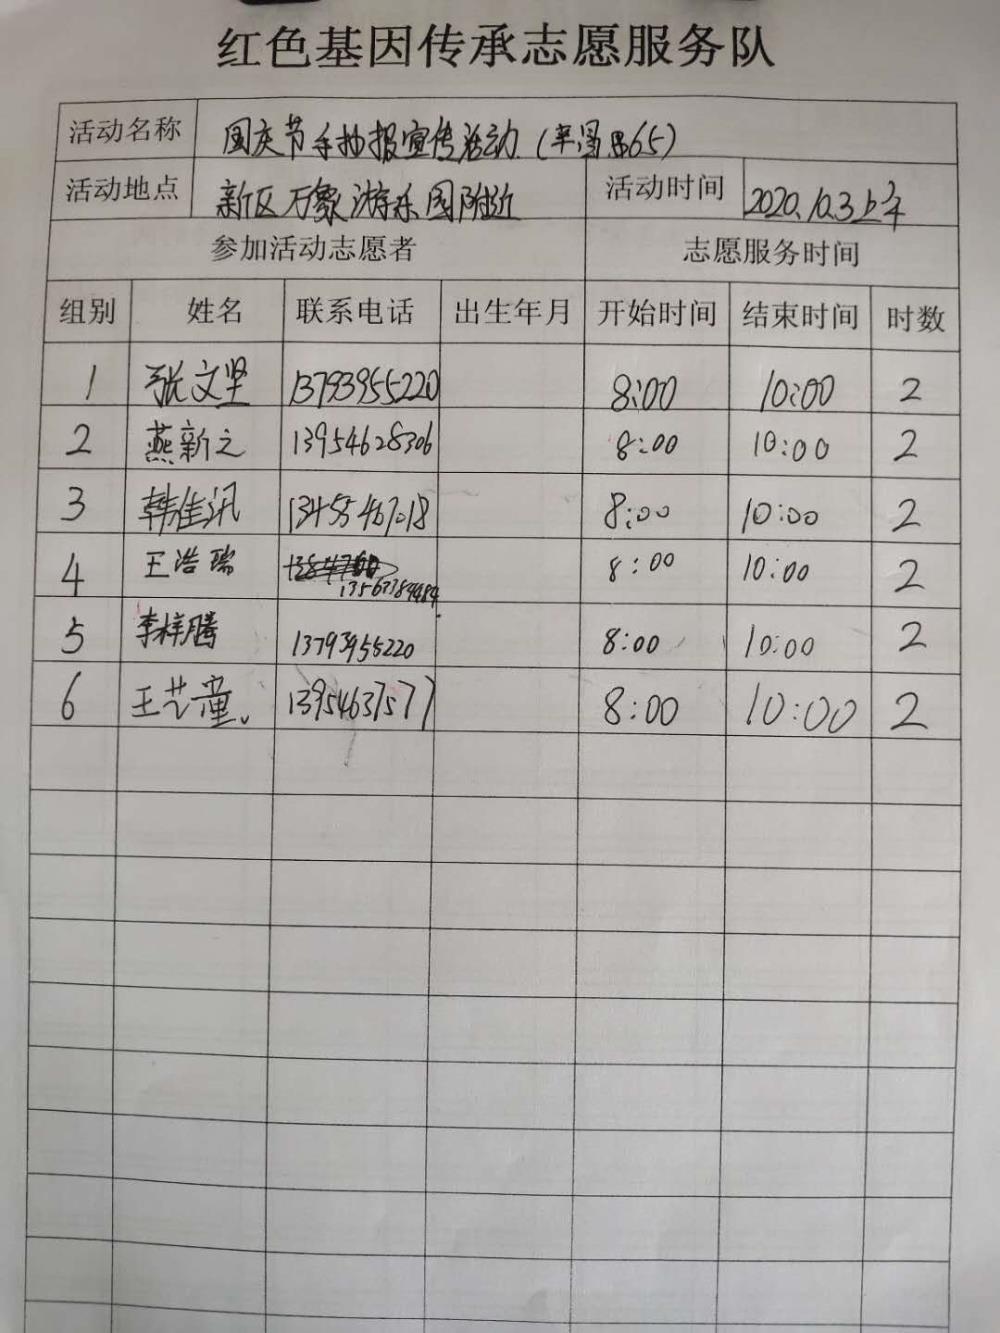 红色基因传承志愿服务队
活动名称 国庆节手抄报宣传活动(
65)
活动地点 新区万象游乐园附近 活动时间 2020.10.3上午
参加活动志愿者 志愿服务时间
组别 姓名 联系电话 出生年月 开始时间 结束时间 时数
1 张文坚 13793955220 8:00 10:00 2
2 燕新之 13954628306 8:00 10:00 2
3 韩佳汛 13455467018 8:00 10:00 2
4 王浩瑞 8:00 10:00 2
5 李梓腾 13793955220 8:00 10:00 2
6 王艺童 13954637577 8:00 10:00 2